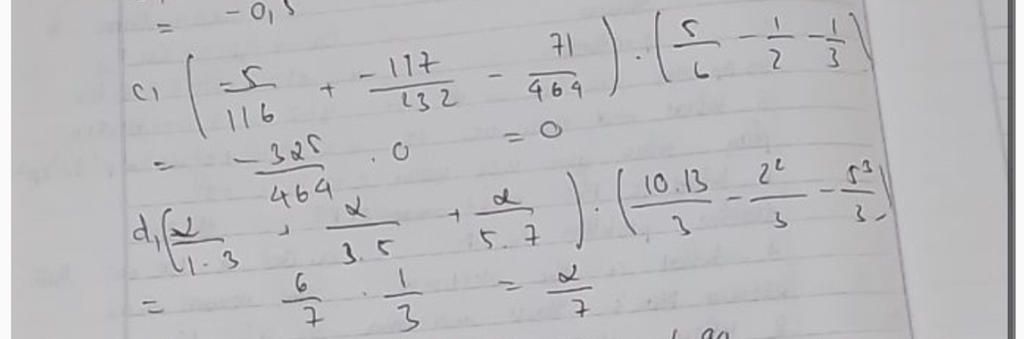 = -0,5
c, (-5/116 + -117/232 - 71/464) . (5/6 - 1/2 - 1/3)
= -325/464 . 0 = 0
d, (2/1.3 + 2/3.5 + 2/5.7) . (10.13/3 - 2²/3 - 5³/3)
= 6/7 . 1/3 = 2/7